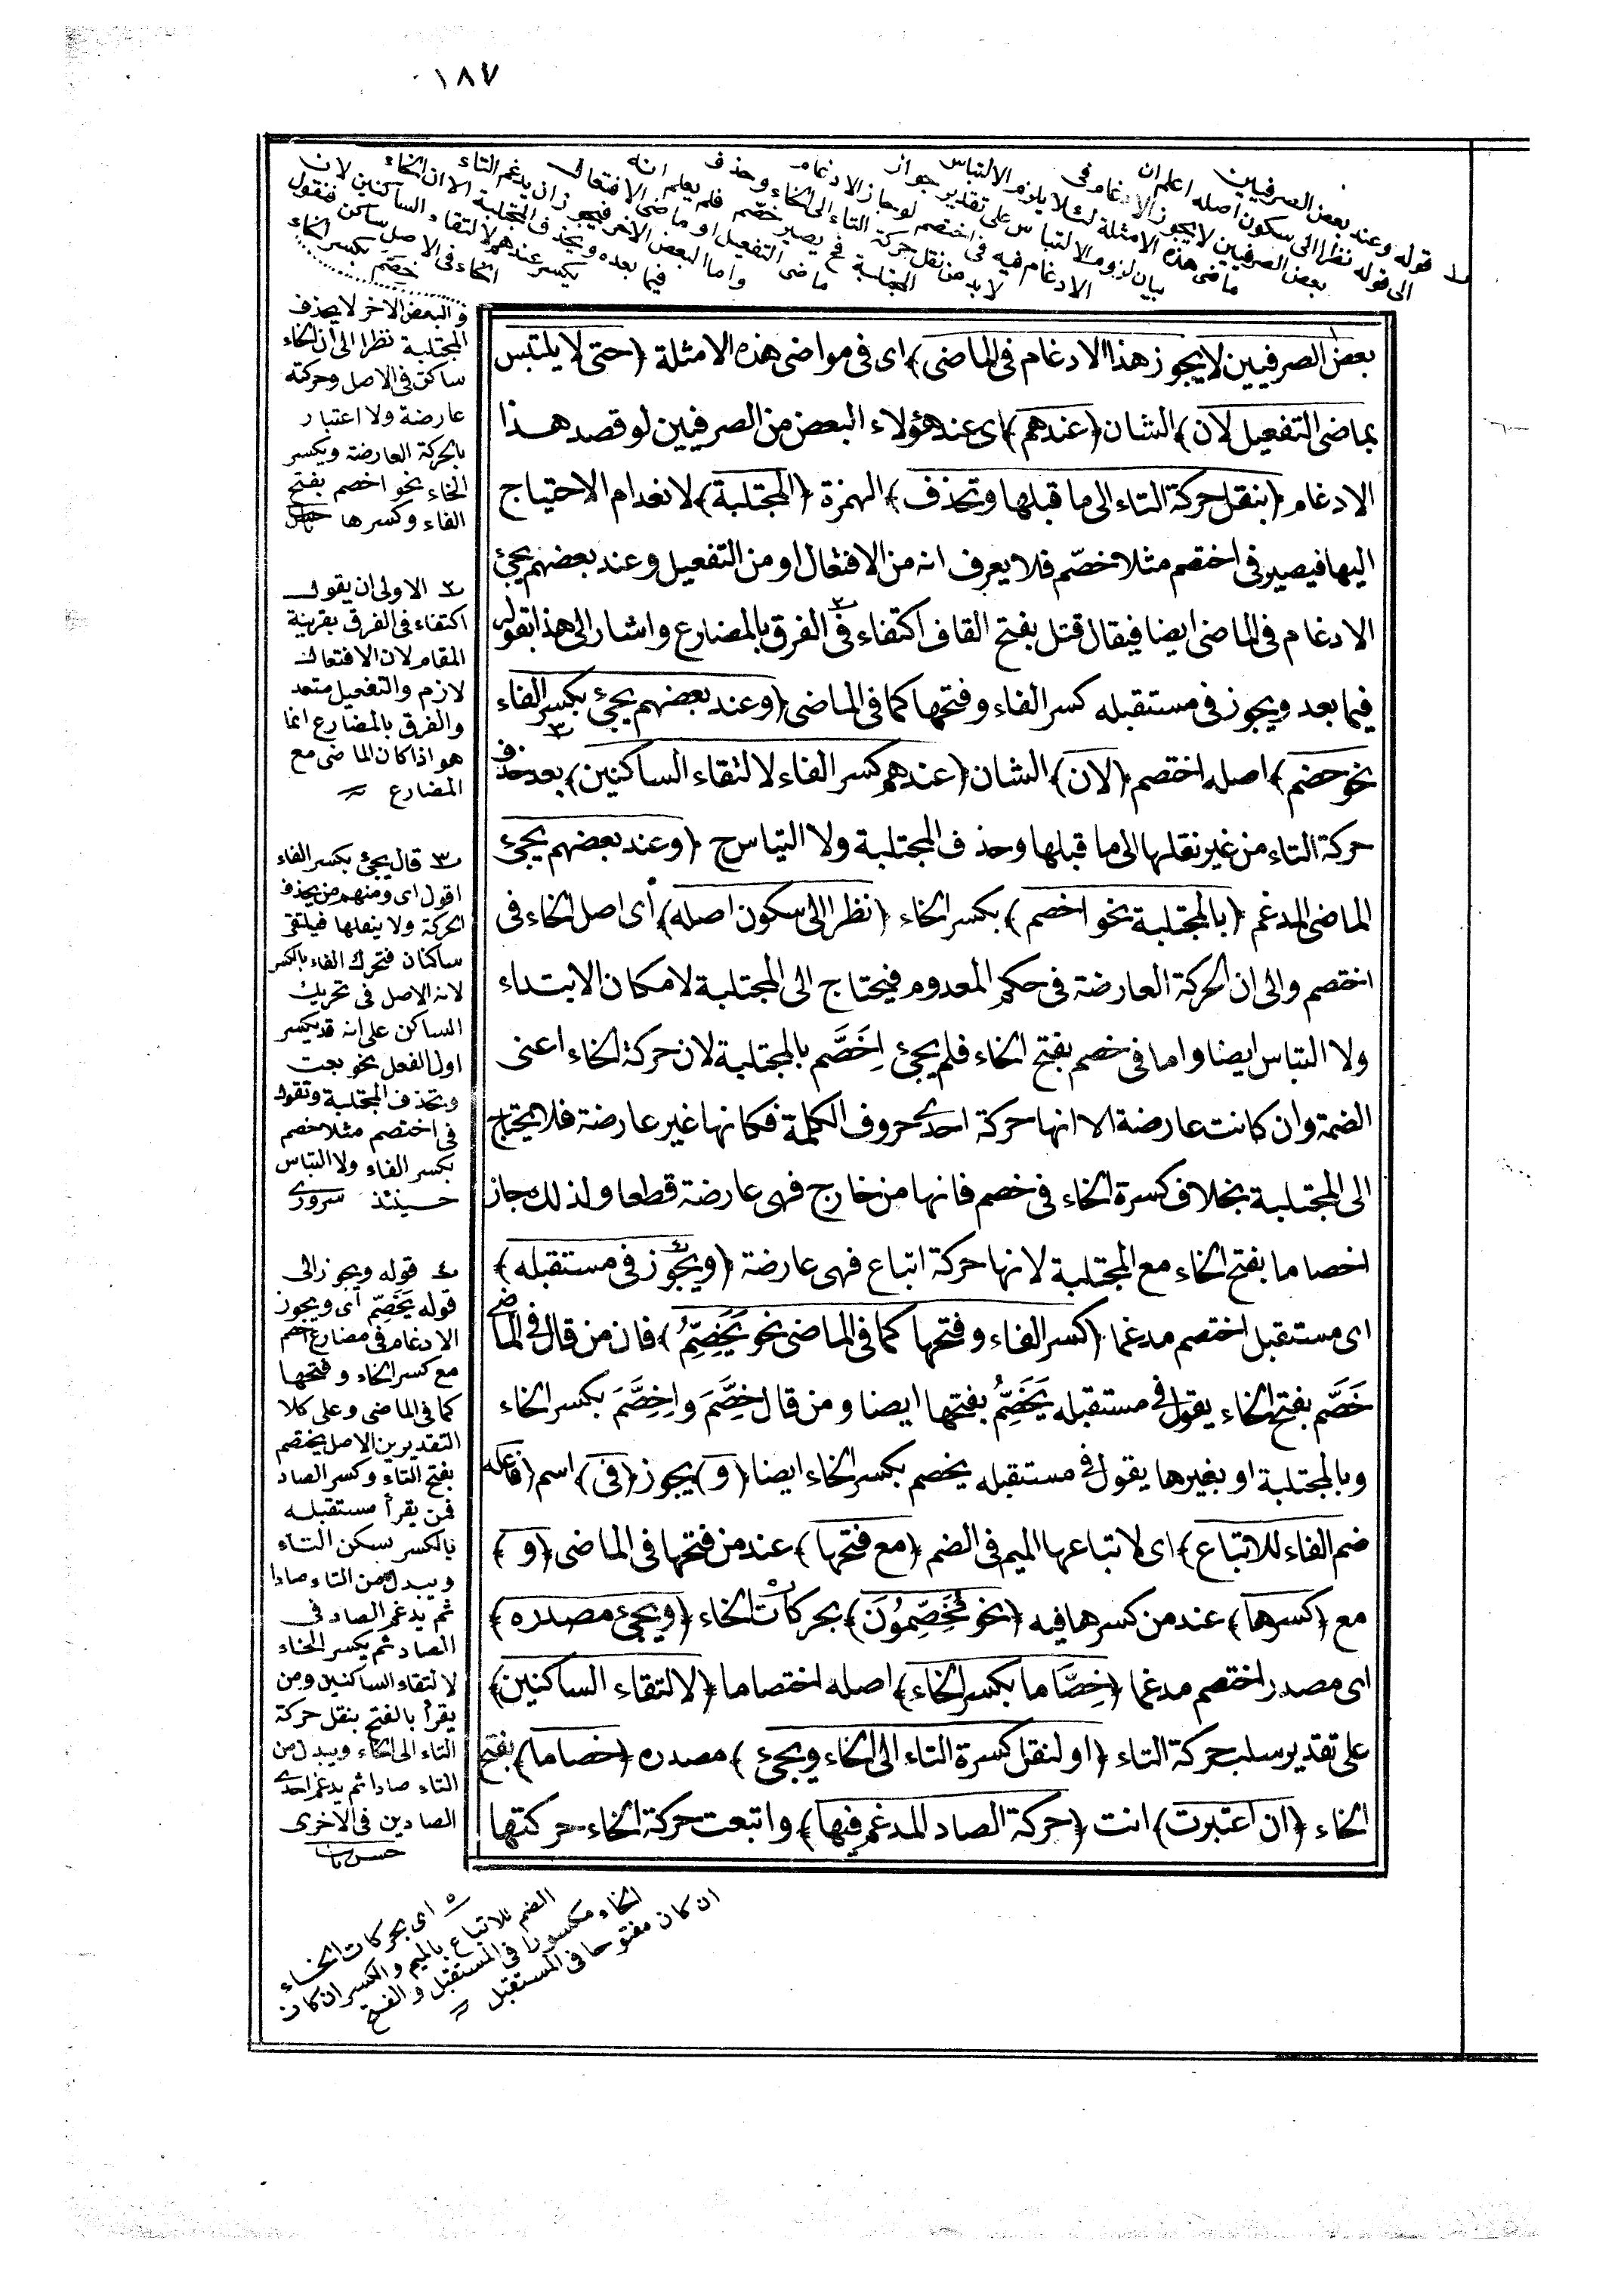 ١٨٧
١ قوله وعند بعض الصرفيين
الى قوله نظرا الى سكون اصله اعلم ان
بعض الصرفيين لا يجوز الادغام فى
ماضى هذه الامثلة لئلا يلزم الالتباس
بيان لزوم الالتباس على تقدير جواز
الادغام فيه فى اختصم لو جاز الادغام
لا بد من نقل حركة التاء الى الخاء وحذف
المجتلبة فح يصير خصّم فلم يعلم انه
ماضى التفعيل او ماضى الافتعال
واما البعض الآخر فيجوز ان يدغم التاء
فيما بعده ويحذف المجتلبة الا ان الخاء
يكسر عندهم لالتقاء الساكنين لان
الخاء فى الاصل ساكن فتقول
خِصّم بكسر الخاء
والبعض الاخر لا يحذف
المجتلبة نظرا الى ان الخاء
ساكن فى الاصل وحركته
عارضة ولا اعتبار
بالحركة العارضة ويكسر
الخاء نحو اخصم بفتح
الفاء وكسرها
بعض الصرفيين لا يجوز هذا الادغام فى الماضى) اى فى مواضى هذه الامثلة (حتى لا يلتبس
بماضى التفعيل لان) الشان (عندهم) اى عند هؤلاء البعض من الصرفيين لو قصد هذا
الادغام (بنقل حركة التاء الى ما قبلها وتحذف) الهمزة (المجتلبة) لانعدام الاحتياج
اليها فيصير فى اختصم مثلا خصّم فلا يعرف انه من الافتعال او من التفعيل وعند بعضهم يجئ
الادغام فى الماضى ايضا فيقال قتل بفتح القاف اكتفاء ٢ فى الفرق بالمضارع واشار الى هذا بقوله
فيما بعد ويجوز فى مستقبله كسر الفاء وفتحها كما فى الماضى (وعند بعضهم يجئ ٣ بكسر الفاء
نحو خصم) اصله اختصم (لان) الشان (عندهم كسر الفاء لالتقاء الساكنين) بعد حذف
حركة التاء من غير نقلها الى ما قبلها وحذف المجتلبة ولا التباس ح (وعند بعضهم يجئ
الماضى المدغم (بالمجتلبة نحو اخصم) بكسر الخاء (نظرا الى سكون اصله) أى اصل الخاء فى
اختصم والى ان الحركة العارضة فى حكم المعدوم فيحتاج الى المجتلبة لامكان الابتداء
ولا التباس ايضا واما فى خصم بفتح الخاء فلم يجئ اِخَصَّم بالمجتلبة لان حركة الخاء اعنى
الضمة وان كانت عارضة الا انها حركة احدى حروف الكلمة فكانها غير عارضة فلا يحتاج
الى المجتلبة بخلاف كسرة الخاء فى خصم فانها من خارج فهى عارضة قطعا ولذلك جاز
اخصاما بفتح الخاء مع المجتلبة لانها حركة اتباع فهى عارضة (ويجوز ٤ فى مستقبله)
اى مستقبل اختصم مدغما (كسر الفاء وفتحها كما فى الماضى نحو يَخَِصِّمُ) فان من قال فى الماضى
خَصَّم بفتح الخاء يقول فى مستقبله يَخَصِّمُ بفتحها ايضا ومن قال خِصَّمَ واِخِصَّمَ بكسر الخاء
وبالمجتلبة او بغيرها يقول فى مستقبله يخصم بكسر الخاء ايضا (و) يجوز (فى) اسم (فاعله
ضم الفاء للاتباع) اى لاتباعها الميم فى الضم (مع فتحها) عند من فتحها فى الماضى (و)
مع (كسرها) عند من كسرها فيه (نحو مُخَصِّمُونَ) بحركات ٥ الخاء (ويجئ مصدره)
اى مصدر اختصم مدغما (خِصَّاما بكسر الخاء) اصله اختصاما (لالتقاء الساكنين)
على تقدير سلب حركة التاء (او لنقل كسرة التاء الى الخاء ويجئ) مصدره (خصاما) بفتح
الخاء (ان اعتبرت) انت (حركة الصاد المدغم فيها) واتبعت حركة الخاء حركتها
٢ الاولى ان يقول
اكتفاء فى الفرق بقرينة
المقام لان الافتعال
لازم والتفعيل متعد
والفرق بالمضارع انما
هو اذا كان الماضى مع
المضارع
٣ قال يجئ بكسر الفاء
اقول اى ومنهم من يحذف
الحركة ولا ينقلها فيلتقى
ساكنان فتحرك الفاء بالكسر
لانه الاصل فى تحريك
الساكن على انه قد يكسر
اول الفعل نحو بعت
وتحذف المجتلبة وتقول
فى اختصم مثلا خصم
بكسر الفاء ولا التباس
حينئذ سرورى
٤ قوله ويجوز الى
قوله يَخَصِّم أى ويجوز
الادغام فى مضارع اختصم
مع كسر الخاء وفتحها
كما فى الماضى وعلى كلا
التقديرين الاصل يختصم
بفتح التاء وكسر الصاد
فمن يقرأ مستقبله
بالكسر سكن التاء
ويبدل من التاء صادا
ثم يدغم الصاد فى
الصاد ثم يكسر الخاء
لالتقاء الساكنين ومن
يقرأ بالفتح بنقل حركة
التاء الى الخاء ويبدل من
التاء صادا ثم يدغم احدى
الصادين فى الاخرى
حسن پاشا
٥ اى بحركات الخاء
الضم للاتباع بالميم والكسر ان كان
الخاء مكسورا فى المستقبل والفتح
ان كان مفتوحا فى المستقبل